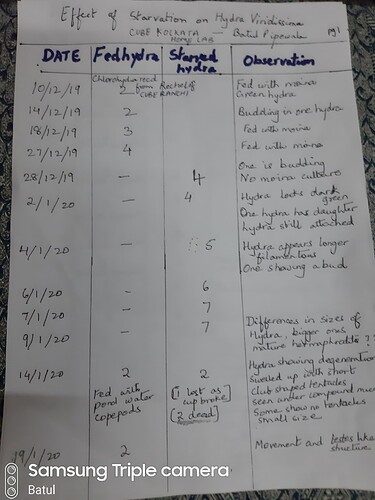 Effect of Starvation on Hydra Viridissima
CUBE KOLKATA — Batul Pipewala pg 1
HOME LAB
DATE Fedhydra Starved hydra Observation
Chlorohydra recd from Rachel of CUBE RANCHI
10/12/19 2 Fed with moina
Green hydra
14/12/19 2 Budding in one hydra
18/12/19 3 Fed with moina
27/12/19 4 Fed with moina
One is budding
28/12/19 — 4 No moina culture
2/1/20 — 4 Hydra looks dark green
One hydra has daughter
hydra still attached
4/1/20 — 5 Hydra appears longer
filamentous
One showing a bud
6/1/20 - 6
7/1/20 - 7
9/1/20 - 7 Differences in sizes of
Hydra, bigger ones
mature hermaphrodite ??
14/1/20 2 2 Hydra showing degeneration
Fed with pond water copepods
[1 lost as cup broke]
(2 dead)
Swelled up with short
club shaped tentacles
seen under compound
Some show no tentacles
small size
19/1/20 2 Movement and testes like
structure
Samsung Triple camera
Batul